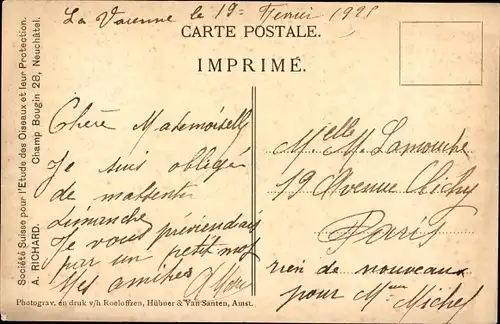 La Varenne le 19 Fevrier 1925
CARTE POSTALE.
IMPRIMÉ.
Société Suisse pour l'Etude des Oiseaux et leur Protection.
A. RICHARD. Champ Bougin 28, Neuchâtel.
Chère Mademoiselle
Je suis obligée
de m'absenter
dimanche
Je vous préviendrais
par un petit mot
Mes amitiés
Melle M. Lamouche
19 Avenue Clichy
Paris
rien de nouveaux
pour Mme Michel
Photograv. en druk v/h Roeloffzen, Hübner & Van Santen, Amst.